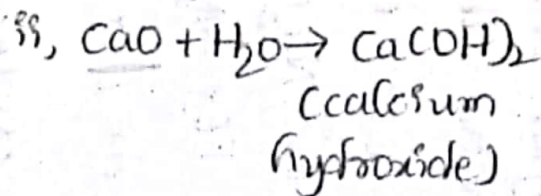 ii, CaO + H₂O → Ca(OH)₂
(calcium
hydroxide)